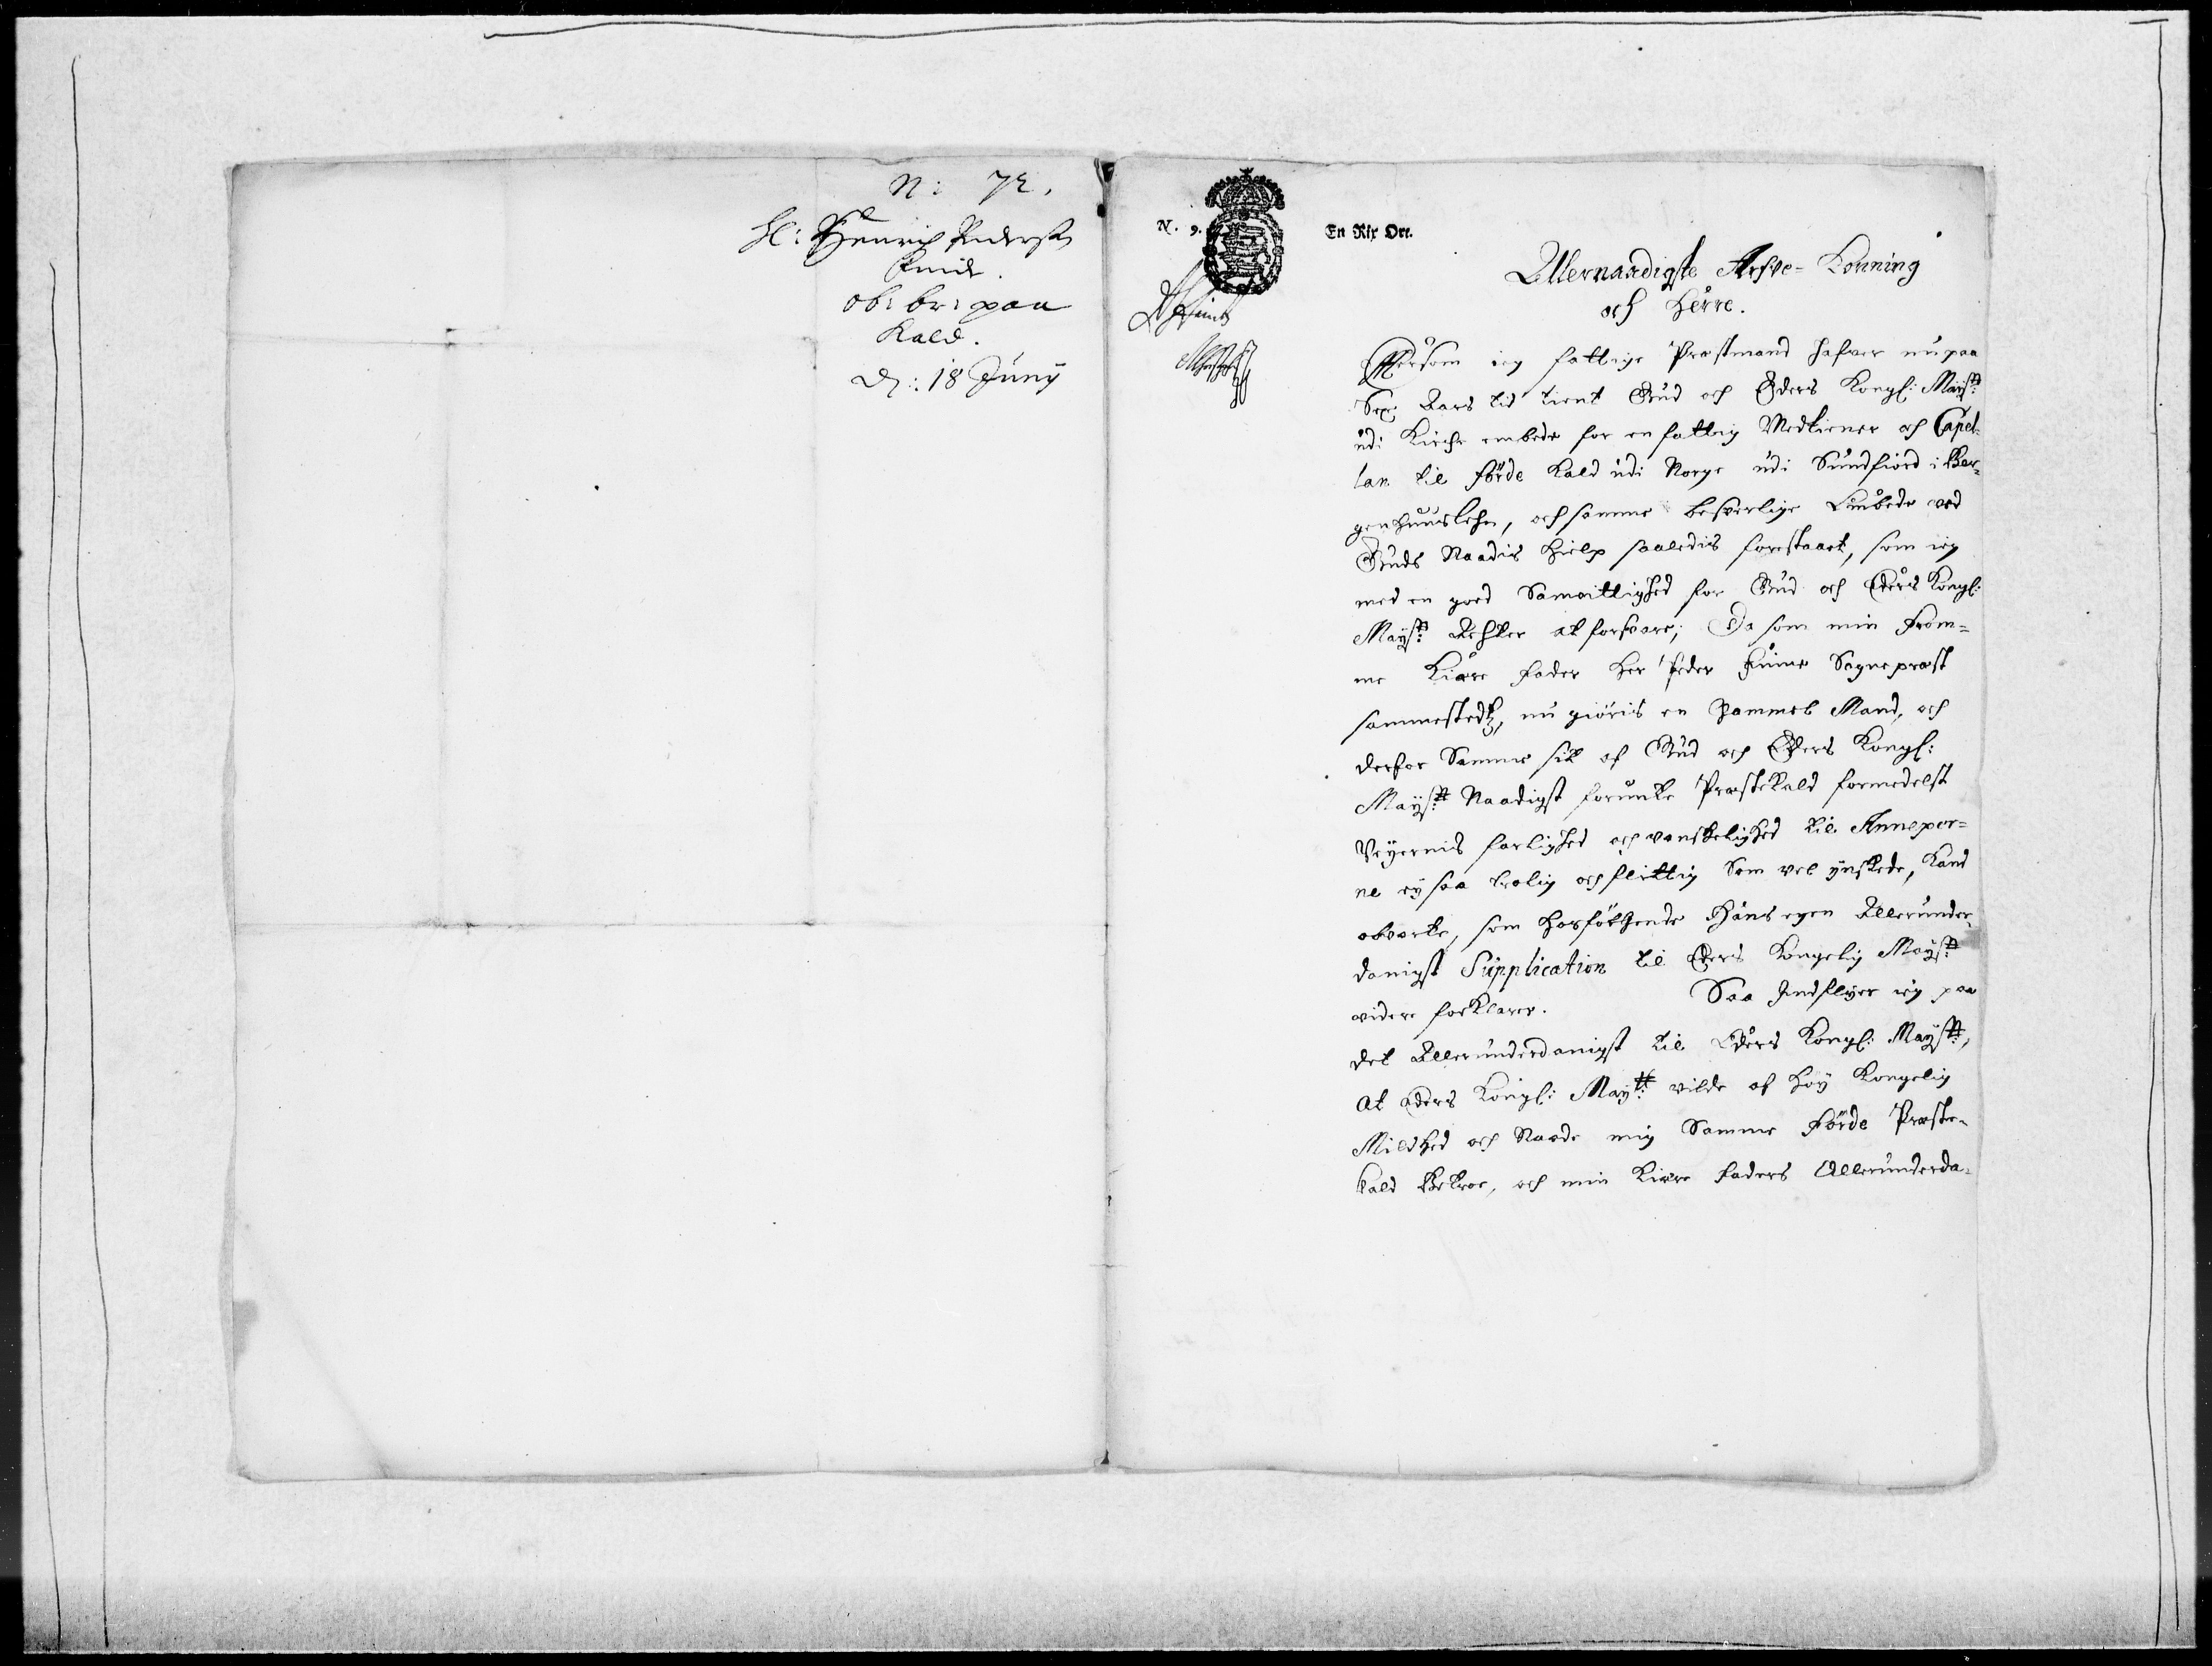 N: 72.
Hl: Henrich Pedersø̄n
Finde.
ob: br: paa
Kald.
D: 18 Junÿ
N. 9.
En Rix Ort.
Allernaadigste Arfve-Konning
och Herre.
Effersom ieg fattige Præstmand hafver nu paa
Sex Aars tid tient Gud och Eders Kongl: Mayst:
udi Kirche embede for en fattig Medtiener och Capel-
lan til Förde Kald udi Norge udi Sundfiord i Ber-
genhuuslehn, och samme besverlige Embede ved
Guds Naadis Hielp saaledis forestaaet, som ieg
med en goed Samvittighed for Gud och Eders Kongl:
Mayst: Achter at forsvare; Da som min From-
me Kiære Fader Her Peder Finne Sogneprest
sammestedtz, nu giöris en Gammel Mand, och
derfor Samme sit af Gud och Eders Kongl:
Mayst: Naadigst forunte Præstekald formedelst
Veyernis farlighed och vanskelighed til Annexer-
ne ey saa trolig och flittig Som vel ynskede, Kand
obvarte, som hosfölgende Hans egen Allerunder-
danigst Supplication til Eders Kongelig Mayst:
videre forklarer. Saa Indflyer ieg paa
det Allerunderdanigst til Eders Kongl: Mayst:,
At Eders Kongl: Mayt: vilde af höy Kongelig
Mildhed och Naade mig Samme Förde Præste-
kald betroe, och min Kiære Faders Allerunderda-